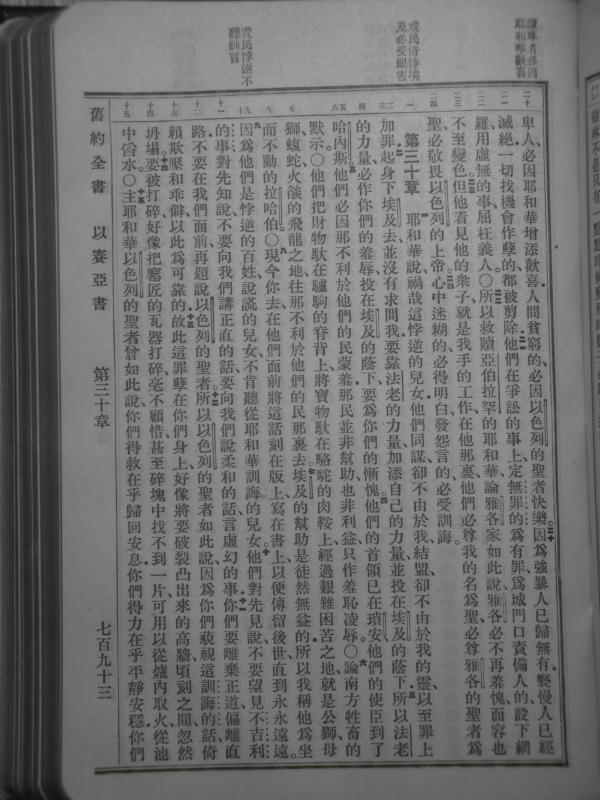 謙卑者必因
耶和華歡喜
成民倚恃埃
及必受賜害
責民悖逆不
聽訓言
卑人必因耶和華增添歡喜人間貧窮的必因以色列的聖者快樂二十因爲強暴人已歸無有褻慢人已經
滅絕一切找機會作孽的都被剪除二一他們在爭訟的事上定無罪的爲有罪爲城門口責備人的設下網
羅用虛無的事屈枉義人〇二二所以救贖亞伯拉罕的耶和華論雅各家如此說雅各必不再羞愧面容也
不至變色二三但他看見他的衆子就是我手的工作在他那裏他們必尊我的名爲聖必尊雅各的聖者爲
聖必敬畏以色列的上帝二四心中迷糊的必得明白發怨言的必受訓誨
第三十章
一耶和華說禍哉這悖逆的兒女他們同謀卻不由於我結盟卻不由於我的靈以至罪上
加罪二起身下埃及去並沒有求問我要靠法老的力量加添自己的力量並投在埃及的蔭下三所以法老
的力量必作你們的羞辱投在埃及的蔭下要爲你們的慚愧四他們的首領已在瑣安他們的使臣到了
哈內斯五他們必因那不利於他們的民蒙羞那民並非幫助也非利益只作羞恥凌辱〇六論南方牲畜的
默示〇他們把財物馱在驢駒的脊背上將寶物馱在駱駝的肉鞍上經過艱難困苦之地就是公獅母
獅蝮蛇火燄的飛龍之地往那不利於他們的民那裏去七埃及的幫助是徒然無益的所以我稱他爲坐
而不動的拉哈伯〇八現今你去在他們面前將這話刻在版上寫在書上以便傳留後世直到永永遠遠
九因爲他們是悖逆的百姓說謊的兒女不肯聽從耶和華訓誨的兒女十他們對先見說不要望見不吉利
的事對先知說不要向我們講正直的話要向我們說柔和的話言虛幻的事十一你們要離棄正道偏離直
路不要在我們面前再題說以色列的聖者十二所以以色列的聖者如此說因爲你們藐視這訓誨的話倚
賴欺壓和乖僻以此爲可靠的十三故此這罪孽在你們身上好像將要破裂凸出來的高牆頃刻之間忽然
坍塌十四要被打碎好像把窰匠的瓦器打碎毫不顧惜甚至碎塊中找不到一片可用以從爐內取火從池
中舀水〇十五主耶和華以色列的聖者曾如此說你們得救在乎歸回安息你們得力在乎平靜安穩你們
舊約全書　以賽亞書　第三十章　七百九十三